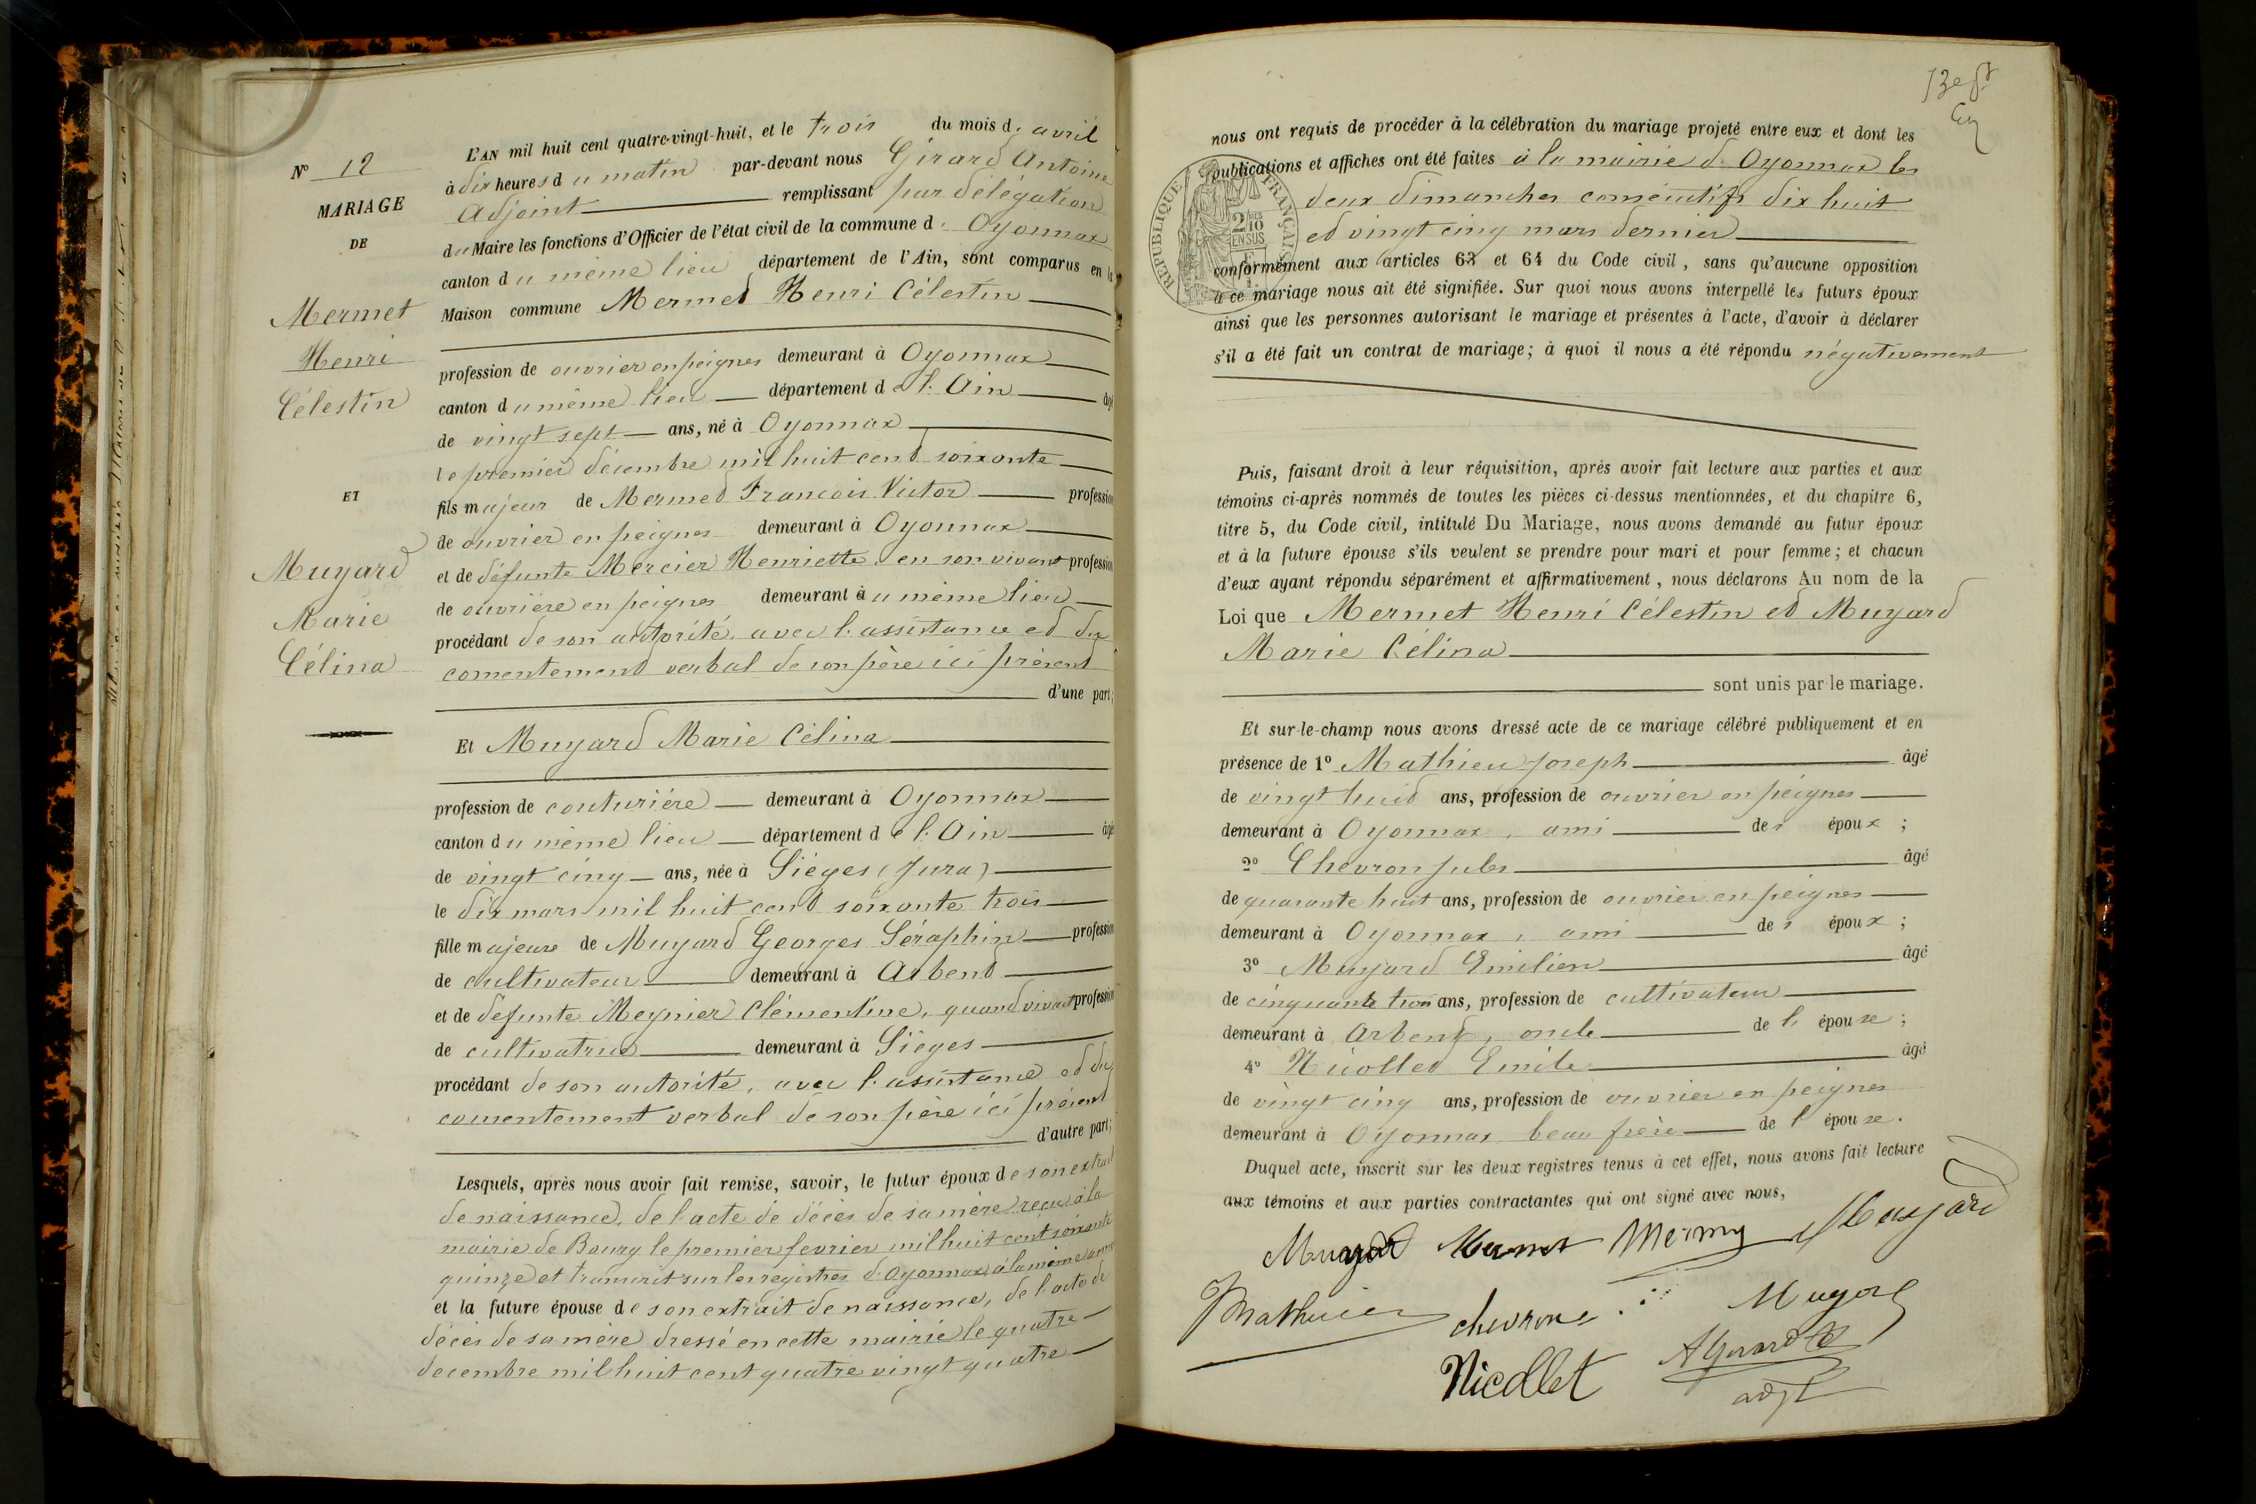 N° 12
MARIAGE
DE
Mermet
Henri
Célestin
ET
Muyard
Marie
Célina
L'AN mil huit cent quatre-vingt-huit, et le trois du mois d'avril
à dix heures du matin par-devant nous Girard Antoine
Adjoint remplissant par délégation
du Maire les fonctions d'Officier de l'état civil de la commune d'Oyonnax
canton du même lieu département de l'Ain, sont comparus en la
Maison commune Mermet Henri Célestin
profession de ouvrier en peignes demeurant à Oyonnax
canton du même lieu département de l'Ain âgé
de vingt sept ans, né à Oyonnax
le premier décembre mil huit cent soixante
fils majeur de Mermet Francois Victor profession
de ouvrier en peignes demeurant à Oyonnax
et de défunte Mercier Henriette en son vivant profession
de ouvrière en peignes demeurant au même lieu
procédant de son autorité, avec l'assistance et du
consentement verbal de son père ici présent
d'une part;
Et Muyard Marie Célina
profession de couturière demeurant à Oyonnax
canton du même lieu département de l'Ain âgée
de vingt cinq ans, née à Sièges (Jura)
le dix mars mil huit cent soixante trois
fille majeure de Muyard Georges Séraphin profession
de cultivateur demeurant à Arbent
et de défunte Meynier Clémentine, quand vivait profession
de cultivatrice demeurant à Sièges
procédant de son autorité, avec l'assistance et du
consentement verbal de son père ici présent
d'autre part;
Lesquels, après nous avoir fait remise, savoir, le futur époux de son extrait
de naissance, de l'acte de décès de sa mère reçu à la
mairie de Bourg le premier fevrier mil huit cent soixante
quinze et transcrit sur les registres d'Oyonnax à la même année
et la future épouse de son extrait de naissance, de l'acte de
décès de sa mère dressé en cette mairie le quatre
decembre mil huit cent quatre vingt quatre
13e ft
nous ont requis de procéder à la célébration du mariage projeté entre eux et dont les
publications et affiches ont été faites à la mairie d'Oyonnax les
deux dimanches consécutifs dix huit
et vingt cinq mars dernier
RÉPUBLIQUE FRANÇAISE
2/10 EN SUS
conformément aux articles 63 et 64 du Code civil, sans qu'aucune opposition
à ce mariage nous ait été signifiée. Sur quoi nous avons interpellé les futurs époux
ainsi que les personnes autorisant le mariage et présentes à l'acte, d'avoir à déclarer
s'il a été fait un contrat de mariage; à quoi il nous a été répondu négativement
Puis, faisant droit à leur réquisition, après avoir fait lecture aux parties et aux
témoins ci-après nommés de toutes les pièces ci-dessus mentionnées, et du chapitre 6,
titre 5, du Code civil, intitulé Du Mariage, nous avons demandé au futur époux
et à la future épouse s'ils veulent se prendre pour mari et pour femme; et chacun
d'eux ayant répondu séparément et affirmativement, nous déclarons Au nom de la
Loi que Mermet Henri Célestin et Muyard
Marie Célina
sont unis par le mariage.
Et sur-le-champ nous avons dressé acte de ce mariage célébré publiquement et en
présence de 1° Mathieu Joseph âgé
de vingt huit ans, profession de ouvrier en peignes
demeurant à Oyonnax, ami des époux;
2° Chevron Jules âgé
de quarante huit ans, profession de ouvrier en peignes
demeurant à Oyonnax, ami des époux;
3° Muyard Emilien âgé
de cinquante trois ans, profession de cultivateur
demeurant à Arbent, oncle de l'épouse;
4° Nicollet Emile âgé
de vingt cinq ans, profession de ouvrier en peignes
demeurant à Oyonnax beau frère de l'épouse.
Duquel acte, inscrit sur les deux registres tenus à cet effet, nous avons fait lecture
aux témoins et aux parties contractantes qui ont signé avec nous,
Muyard Mermet Mermet Muyard
Mathieu chevron j. Muyard
Nicollet A Girard
adjt